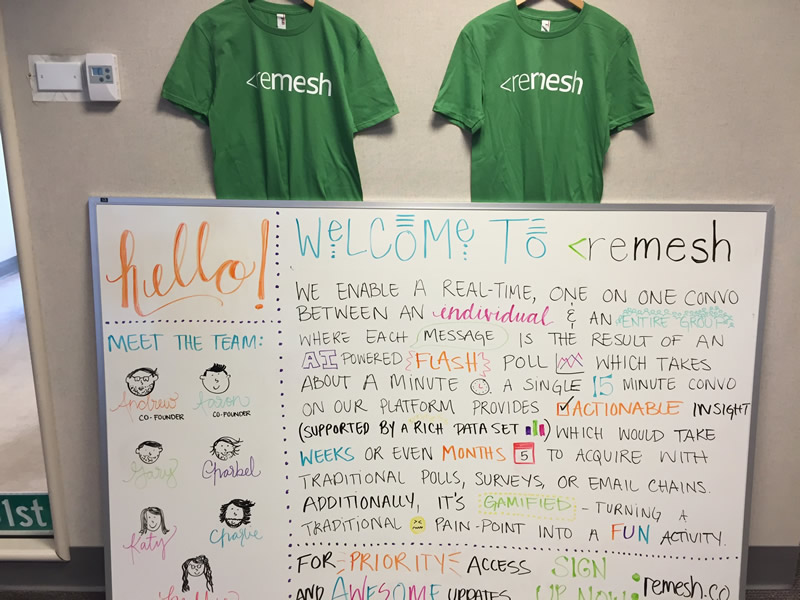 <remesh
<remesh
hello!
MEET THE TEAM:
Andrew
CO-FOUNDER
Aaron
CO-FOUNDER
Gary
Charbel
Katy
1st
WELCOME TO <remesh
WE ENABLE A REAL-TIME, ONE ON ONE CONVO
BETWEEN AN individual & AN ENTIRE GROUP
WHERE EACH MESSAGE IS THE RESULT OF AN
AI POWERED FLASH POLL WHICH TAKES
ABOUT A MINUTE. A SINGLE 15 MINUTE CONVO
ON OUR PLATFORM PROVIDES ACTIONABLE INSIGHT
(SUPPORTED BY A RICH DATA SET) WHICH WOULD TAKE
WEEKS OR EVEN MONTHS 5 TO ACQUIRE WITH
TRADITIONAL POLLS, SURVEYS, OR EMAIL CHAINS.
ADDITIONALLY, IT'S GAMIFIED - TURNING A
TRADITIONAL PAIN-POINT INTO A FUN ACTIVITY.
FOR PRIORITY ACCESS
AND AWESOME UPDATES
SIGN
UP NOW:
remesh.co